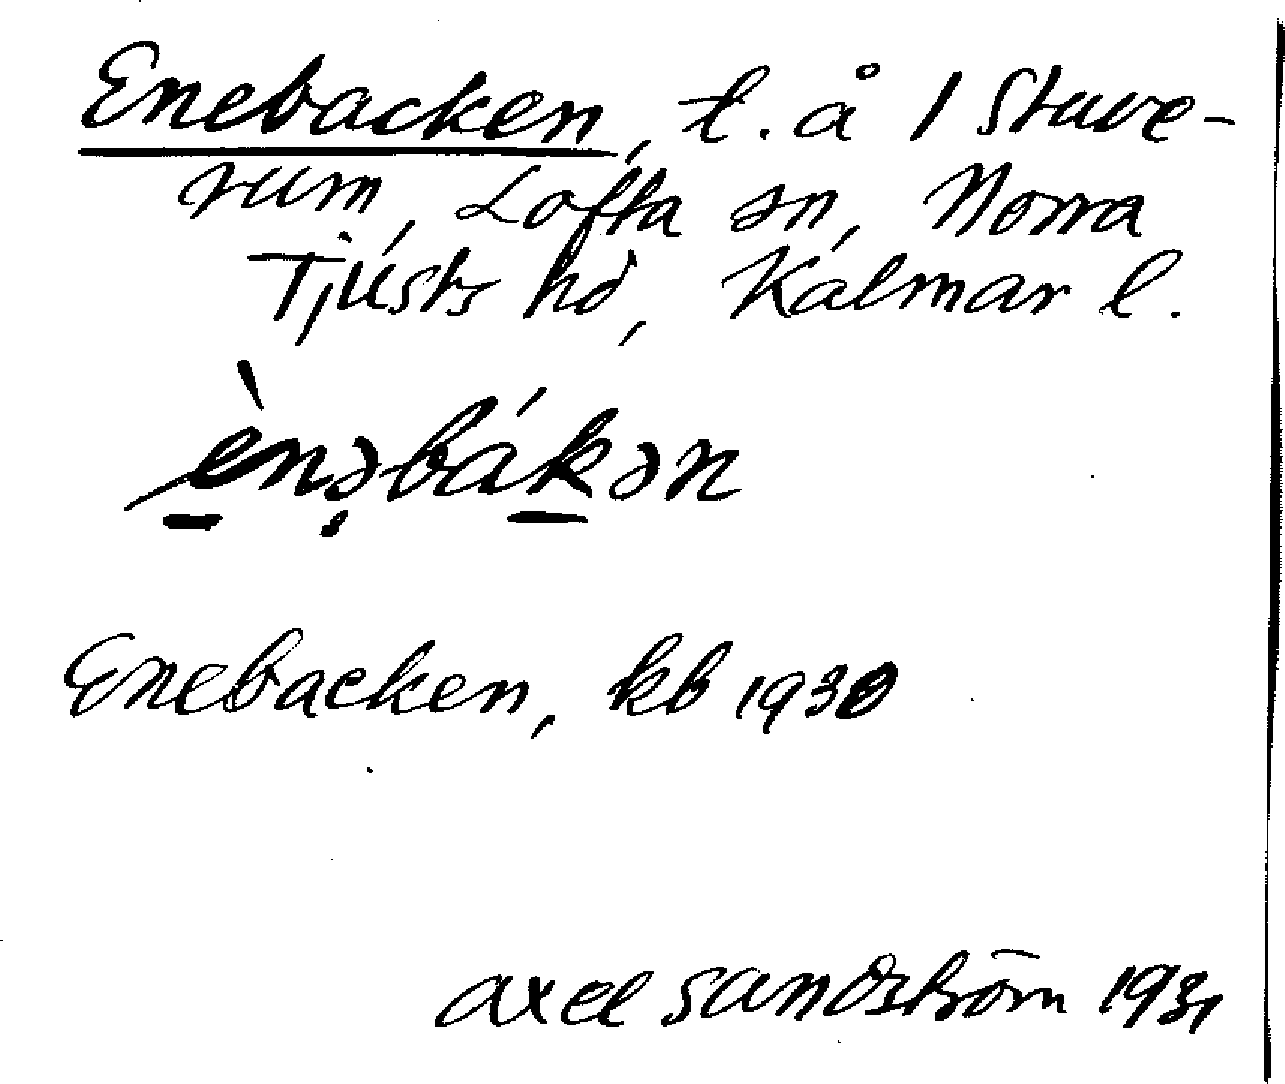 Enebacken, t. å 1 Stuve-
rum, Lofta sn, Norra
Tjusts hd, Kalmar l.
ènəbákən
Enebacken, kb 1930
Axel Sandström 1931